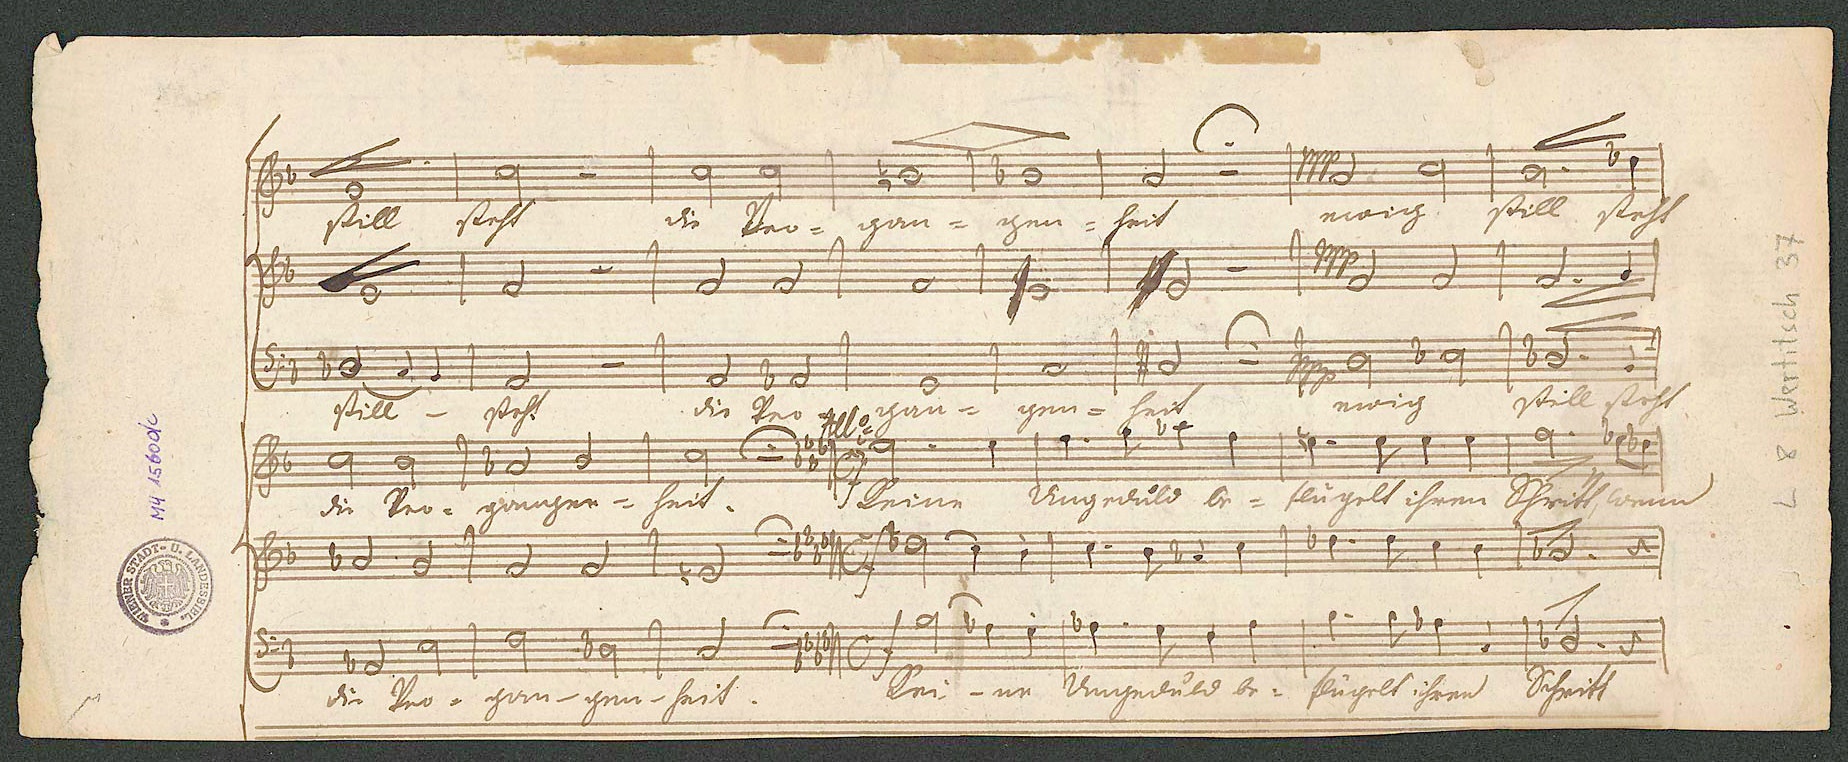 still steht die Ver= gan = gen = heit ewig still steht
ppp
ppp
still – steht die Ver gan = gen = heit ewig still steht
ppp
Allo
die Ver= gangen = heit. f Keine Ungeduld be = flügelt ihren Schritt, wenn
f
die Ver = gan – gen – heit. f Kei – ne Ungeduld be = flügelt ihren Schritt
MH 15600/c
WIENER STADT- U. LANDESBIBL.
L 8 Wertitsch 37